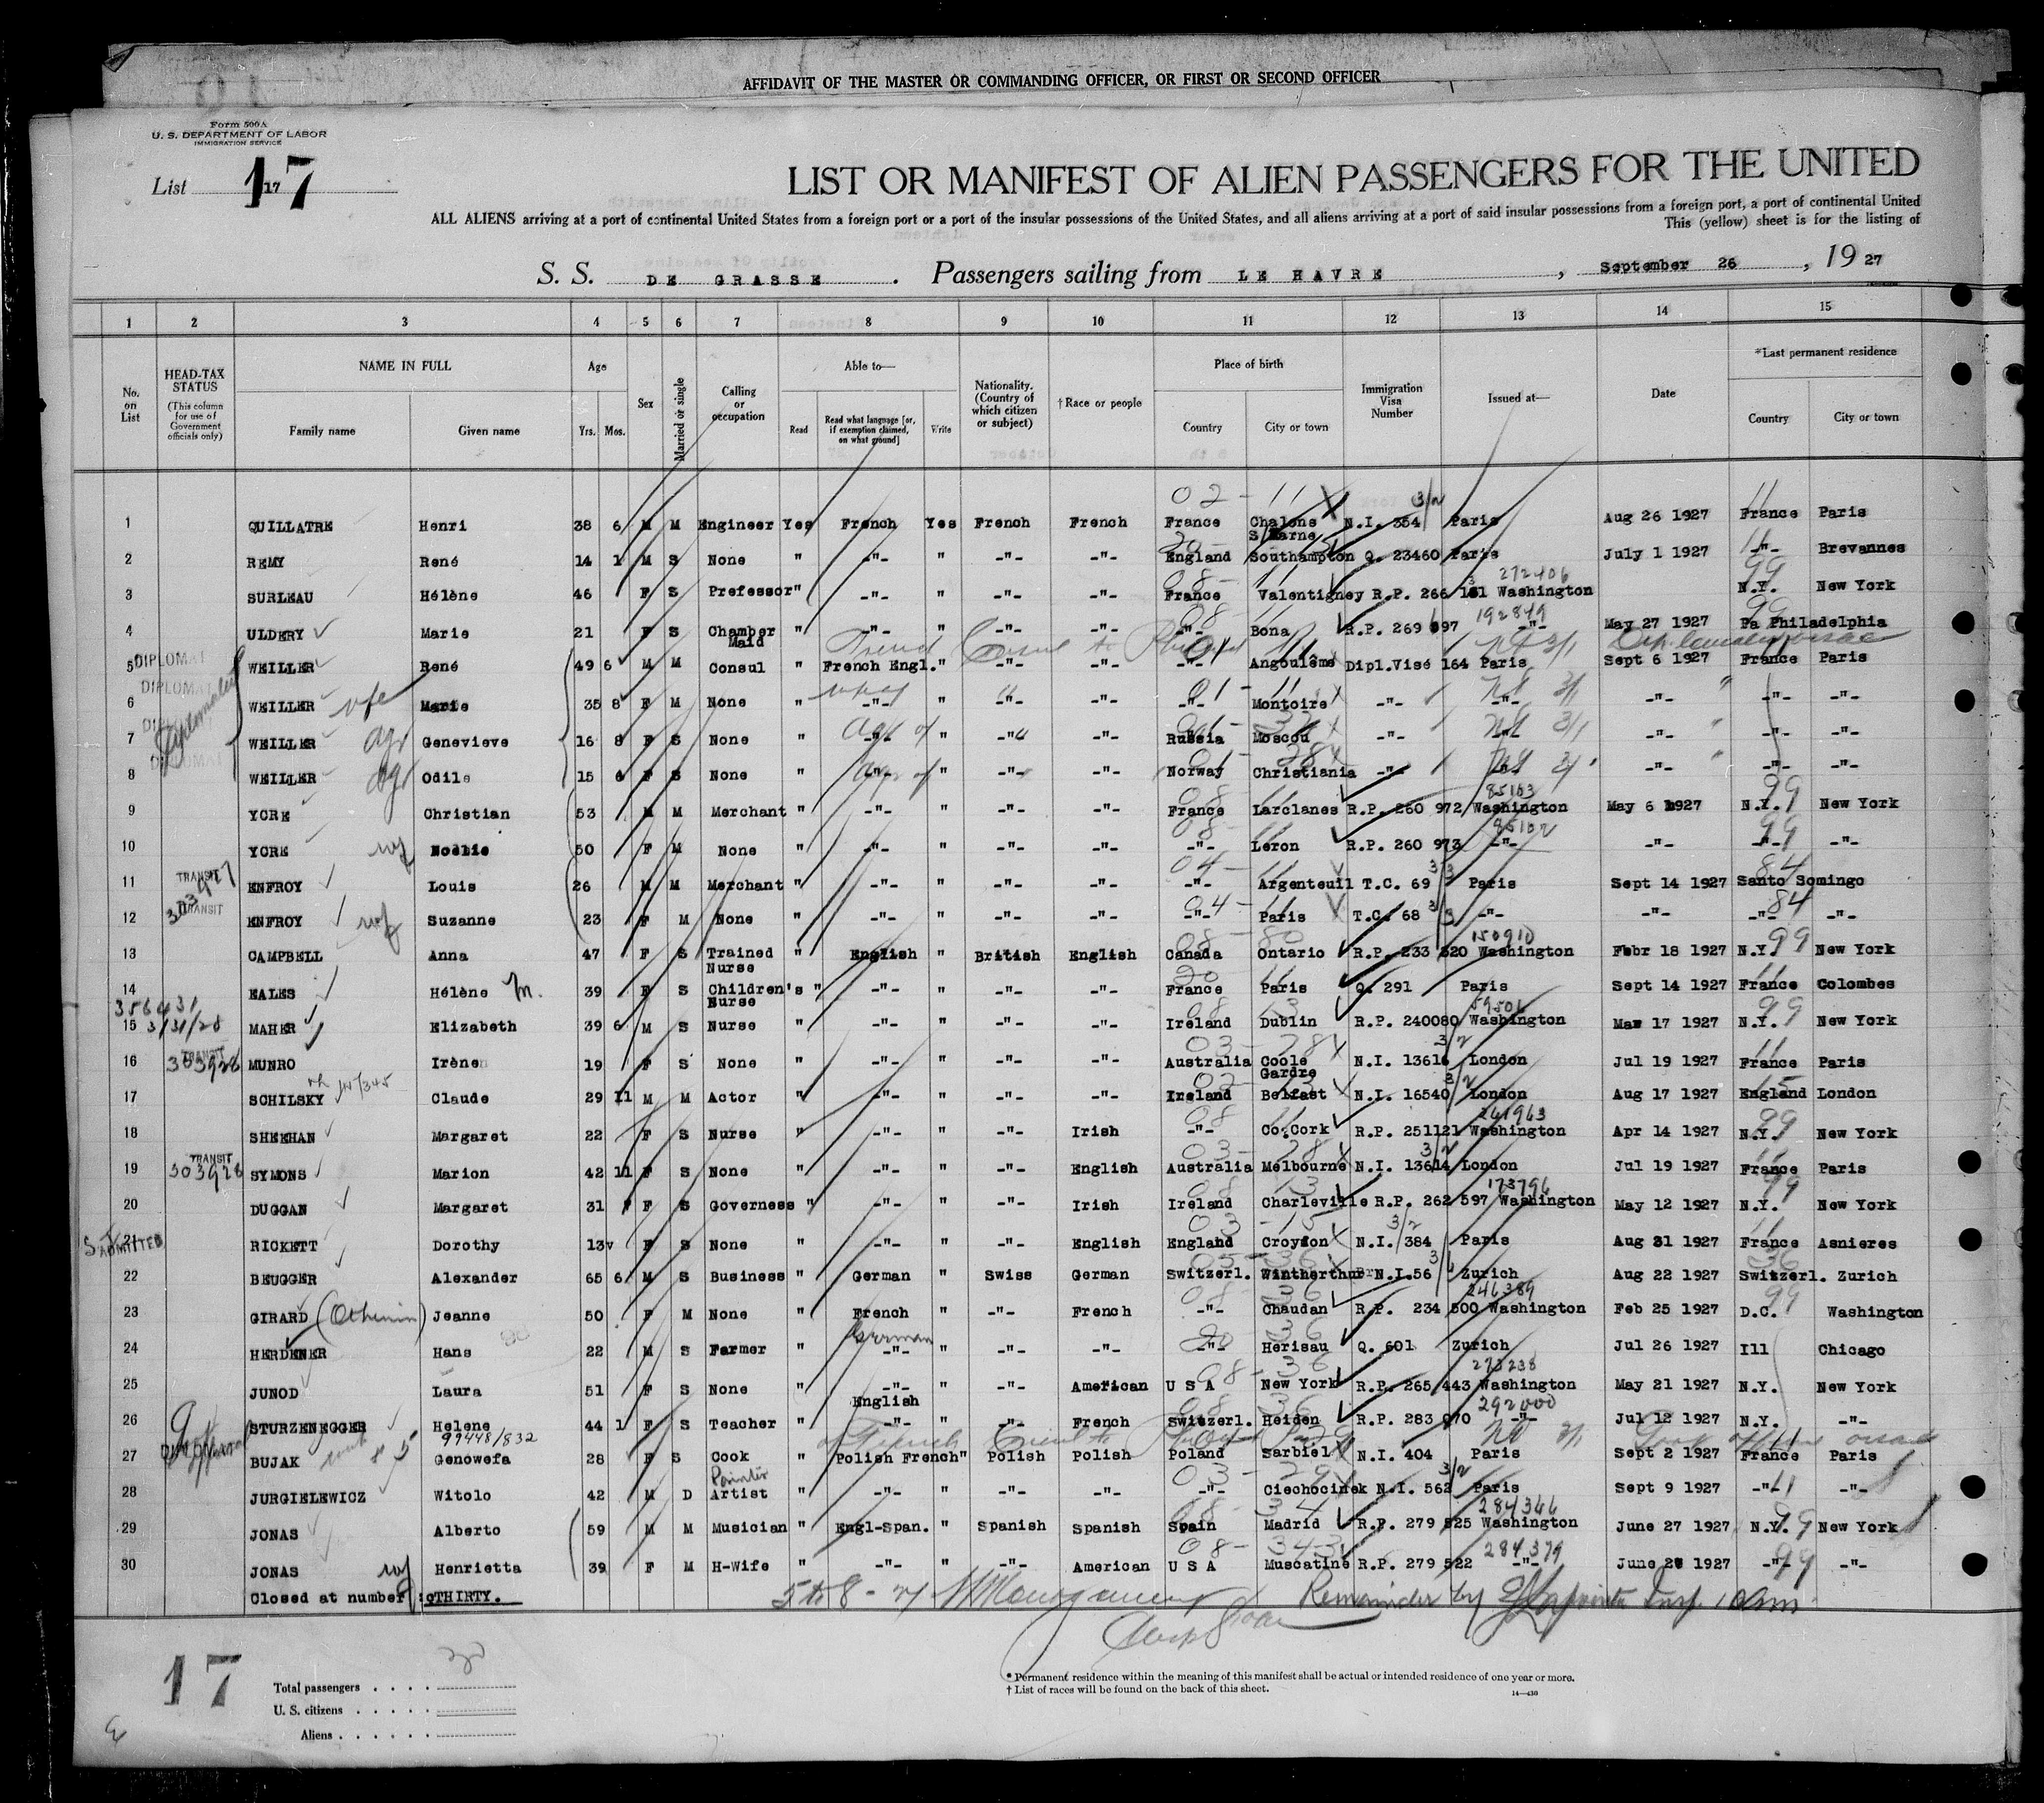 AFFIDAVIT OF THE MASTER OR COMMANDING OFFICER, OR FIRST OR SECOND OFFICER
Form 500A
U. S. DEPARTMENT OF LABOR
IMMIGRATION SERVICE
List 17 17
LIST OR MANIFEST OF ALIEN PASSENGERS FOR THE UNITED
ALL ALIENS arriving at a port of continental United States from a foreign port or a port of the insular possessions of the United States, and all aliens arriving at a port of said insular possessions from a foreign port, a port of continental United
This (yellow) sheet is for the listing of
S. S. DE GRASSE . Passengers sailing from LE HAVRE , September 26 , 19 27
1 2 3 4 5 6 7 8 9 10 11 12 13 14 15
No. on List
HEAD-TAX STATUS (This column for use of Government officials only)
NAME IN FULL Family name Given name
Age Yrs. Mos.
Sex
Married or single
Calling or occupation
Able to— Read Read what language [or, if exemption claimed, on what ground] Write
Nationality. (Country of which citizen or subject)
† Race or people
Place of birth Country City or town
Immigration Visa Number
Issued at—
Date
*Last permanent residence Country City or town
1 QUILLATRE Henri 38 6 M M Engineer Yes French Yes French French France Chalons S/Marne N.I. 354 3/2 Paris Aug 26 1927 France Paris
2 REMY René 14 1 M S None " -"- " -"- -"- England Southampton Q. 23460 Paris July 1 1927 -"- Brevannes
3 SURLEAU Hélène 46 F S Professor " -"- " -"- -"- France Valentigney R.P. 266 151 Washington 272406 N.Y. New York
4 ULDERY Marie 21 F S Chamber Maid " -"- " -"- -"- -"- Bona R.P. 269 697 192849 -"- May 27 1927 Pa Philadelphia
5 DIPLOMAT WEILLER René 49 6 M M Consul " French Engl. " -"- -"- -"- Angoulême Dipl.Visé 164 Paris Sept 6 1927 France Paris
6 DIPLOMAT WEILLER wife Marie 35 8 F M None " -"- " -"- -"- -"- Montoire -"- -"- -"- -"- -"-
7 WEILLER Genevieve 16 8 F S None " -"- " -"- -"- Russia Moscou -"- -"- -"- -"- -"-
8 WEILLER Odile 15 6 F S None " -"- " -"- -"- Norway Christiania -"- -"- -"- -"- -"-
9 YCRE Christian 53 M M Merchant " -"- " -"- -"- France Larclanes R.P. 260 972 85103 Washington May 6 1927 N.Y. New York
10 YCRE wf Noëlie 50 F M None " -"- " -"- -"- -"- Leron R.P. 260 973 85102 -"- -"- -"- -"-
11 TRANSIT ENFROY Louis 26 M M Merchant " -"- " -"- -"- -"- Argenteuil T.C. 69 3/3 Paris Sept 14 1927 Santo Somingo
12 TRANSIT ENFROY wf Suzanne 23 F M None " -"- " -"- -"- -"- Paris T.C. 68 3/3 -"- -"- -"- -"-
13 CAMPBELL Anna 47 F S Trained Nurse " English " British English Canada Ontario R.P. 233 520 150910 Washington Febr 18 1927 N.Y. New York
14 EALES Hélène M. 39 F S Children's Nurse " -"- " -"- -"- France Paris Q. 291 Paris Sept 14 1927 France Colombes
356431
15 3/31/28 MAHER Elizabeth 39 6 M S Nurse " -"- " -"- -"- Ireland Dublin R.P. 240080 59506 Washington Mar 17 1927 N.Y. New York
16 TRANSIT 303928 MUNRO Irène 19 F S None " -"- " -"- -"- Australia Coole Gardre N.I. 13616 3/2 London Jul 19 1927 France Paris
17 SCHILSKY Claude 29 11 M M Actor " -"- " -"- -"- Ireland Belfast N.I. 16540 3/2 London Aug 17 1927 England London
18 SHEEHAN Margaret 22 F S Nurse " -"- " -"- Irish -"- Co.Cork R.P. 251121 261963 Washington Apr 14 1927 N.Y. New York
19 TRANSIT 303928 SYMONS Marion 42 11 F S None " -"- " -"- English Australia Melbourne N.I. 13614 3/2 London Jul 19 1927 France Paris
20 DUGGAN Margaret 31 F S Governess " -"- " -"- Irish Ireland Charleville R.P. 262 597 173796 Washington May 12 1927 N.Y. New York
21 ADMITTED RICKETT Dorothy 13 F S None " -"- " -"- English England Croydon N.I. 384 3/2 Paris Aug 31 1927 France Asnieres
22 BEUGGER Alexander 65 6 M S Business " German " Swiss German Switzerl. Wintherthur N.I.56 3/1 Zurich Aug 22 1927 Switzerl. Zurich
23 GIRARD (Othenin) Jeanne 50 F M None " French " -"- French -"- Chaudan R.P. 234 500 246389 Washington Feb 25 1927 D.C. Washington
24 HERDENER Hans 22 M S Farmer " German -"- " -"- -"- -"- Herisau Q. 601 Zurich Jul 26 1927 Ill Chicago
25 JUNOD Laura 51 F S None " -"- English " -"- American U S A New York R.P. 265 443 273238 Washington May 21 1927 N.Y. New York
26 STURZENEGGER Helene 44 1 F S Teacher " -"- " -"- French Switzerl. Heiden R.P. 283 070 292000 -"- Jul 12 1927 N.Y. -"-
27 BUJAK 99448/832 Genowefa 28 F S Cook " Polish French " Polish Polish Poland Sarbiel N.I. 404 Paris Sept 2 1927 France Paris
28 JURGIELEWICZ Witolo 42 M D Painter Artist " -"- " -"- -"- -"- Ciechocinek N.I. 562 3/2 Paris Sept 9 1927 -"- -"-
29 JONAS Alberto 59 M M Musician " Engl-Span. " Spanish Spanish Spain Madrid R.P. 279 525 284366 Washington June 27 1927 N.Y. New York
30 JONAS wf Henrietta 39 F M H-Wife " -"- " -"- American U S A Muscatine R.P. 279 522 284379 -"- June 28 1927 -"- -"-
Closed at number : THIRTY.
5 to 8 - Remainder by Insp.
17
Total passengers . . . . 30
U. S. citizens . . . . .
Aliens . . . . . .
* Permanent residence within the meaning of this manifest shall be actual or intended residence of one year or more.
† List of races will be found on the back of this sheet.
14—430